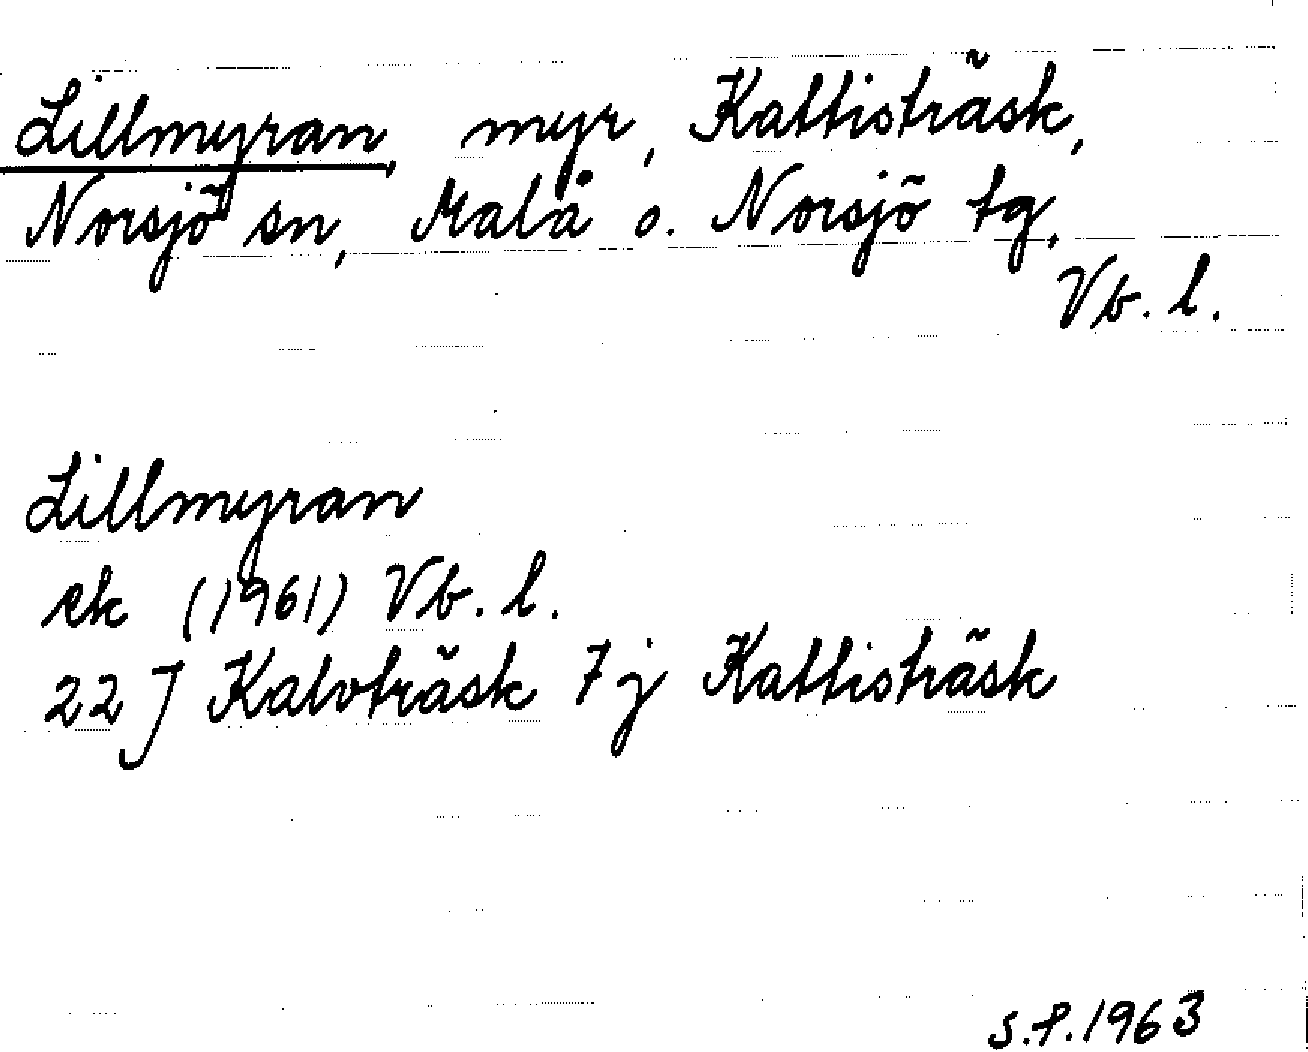 Lillmyran, myr, Kattisträsk,
Norsjö sn, Malå o. Norsjö tg,
Vb. l.
Lillmyran
ek (1961) Vb. l.
22 J Kalvträsk 7 j Kattisträsk
S.P. 1963